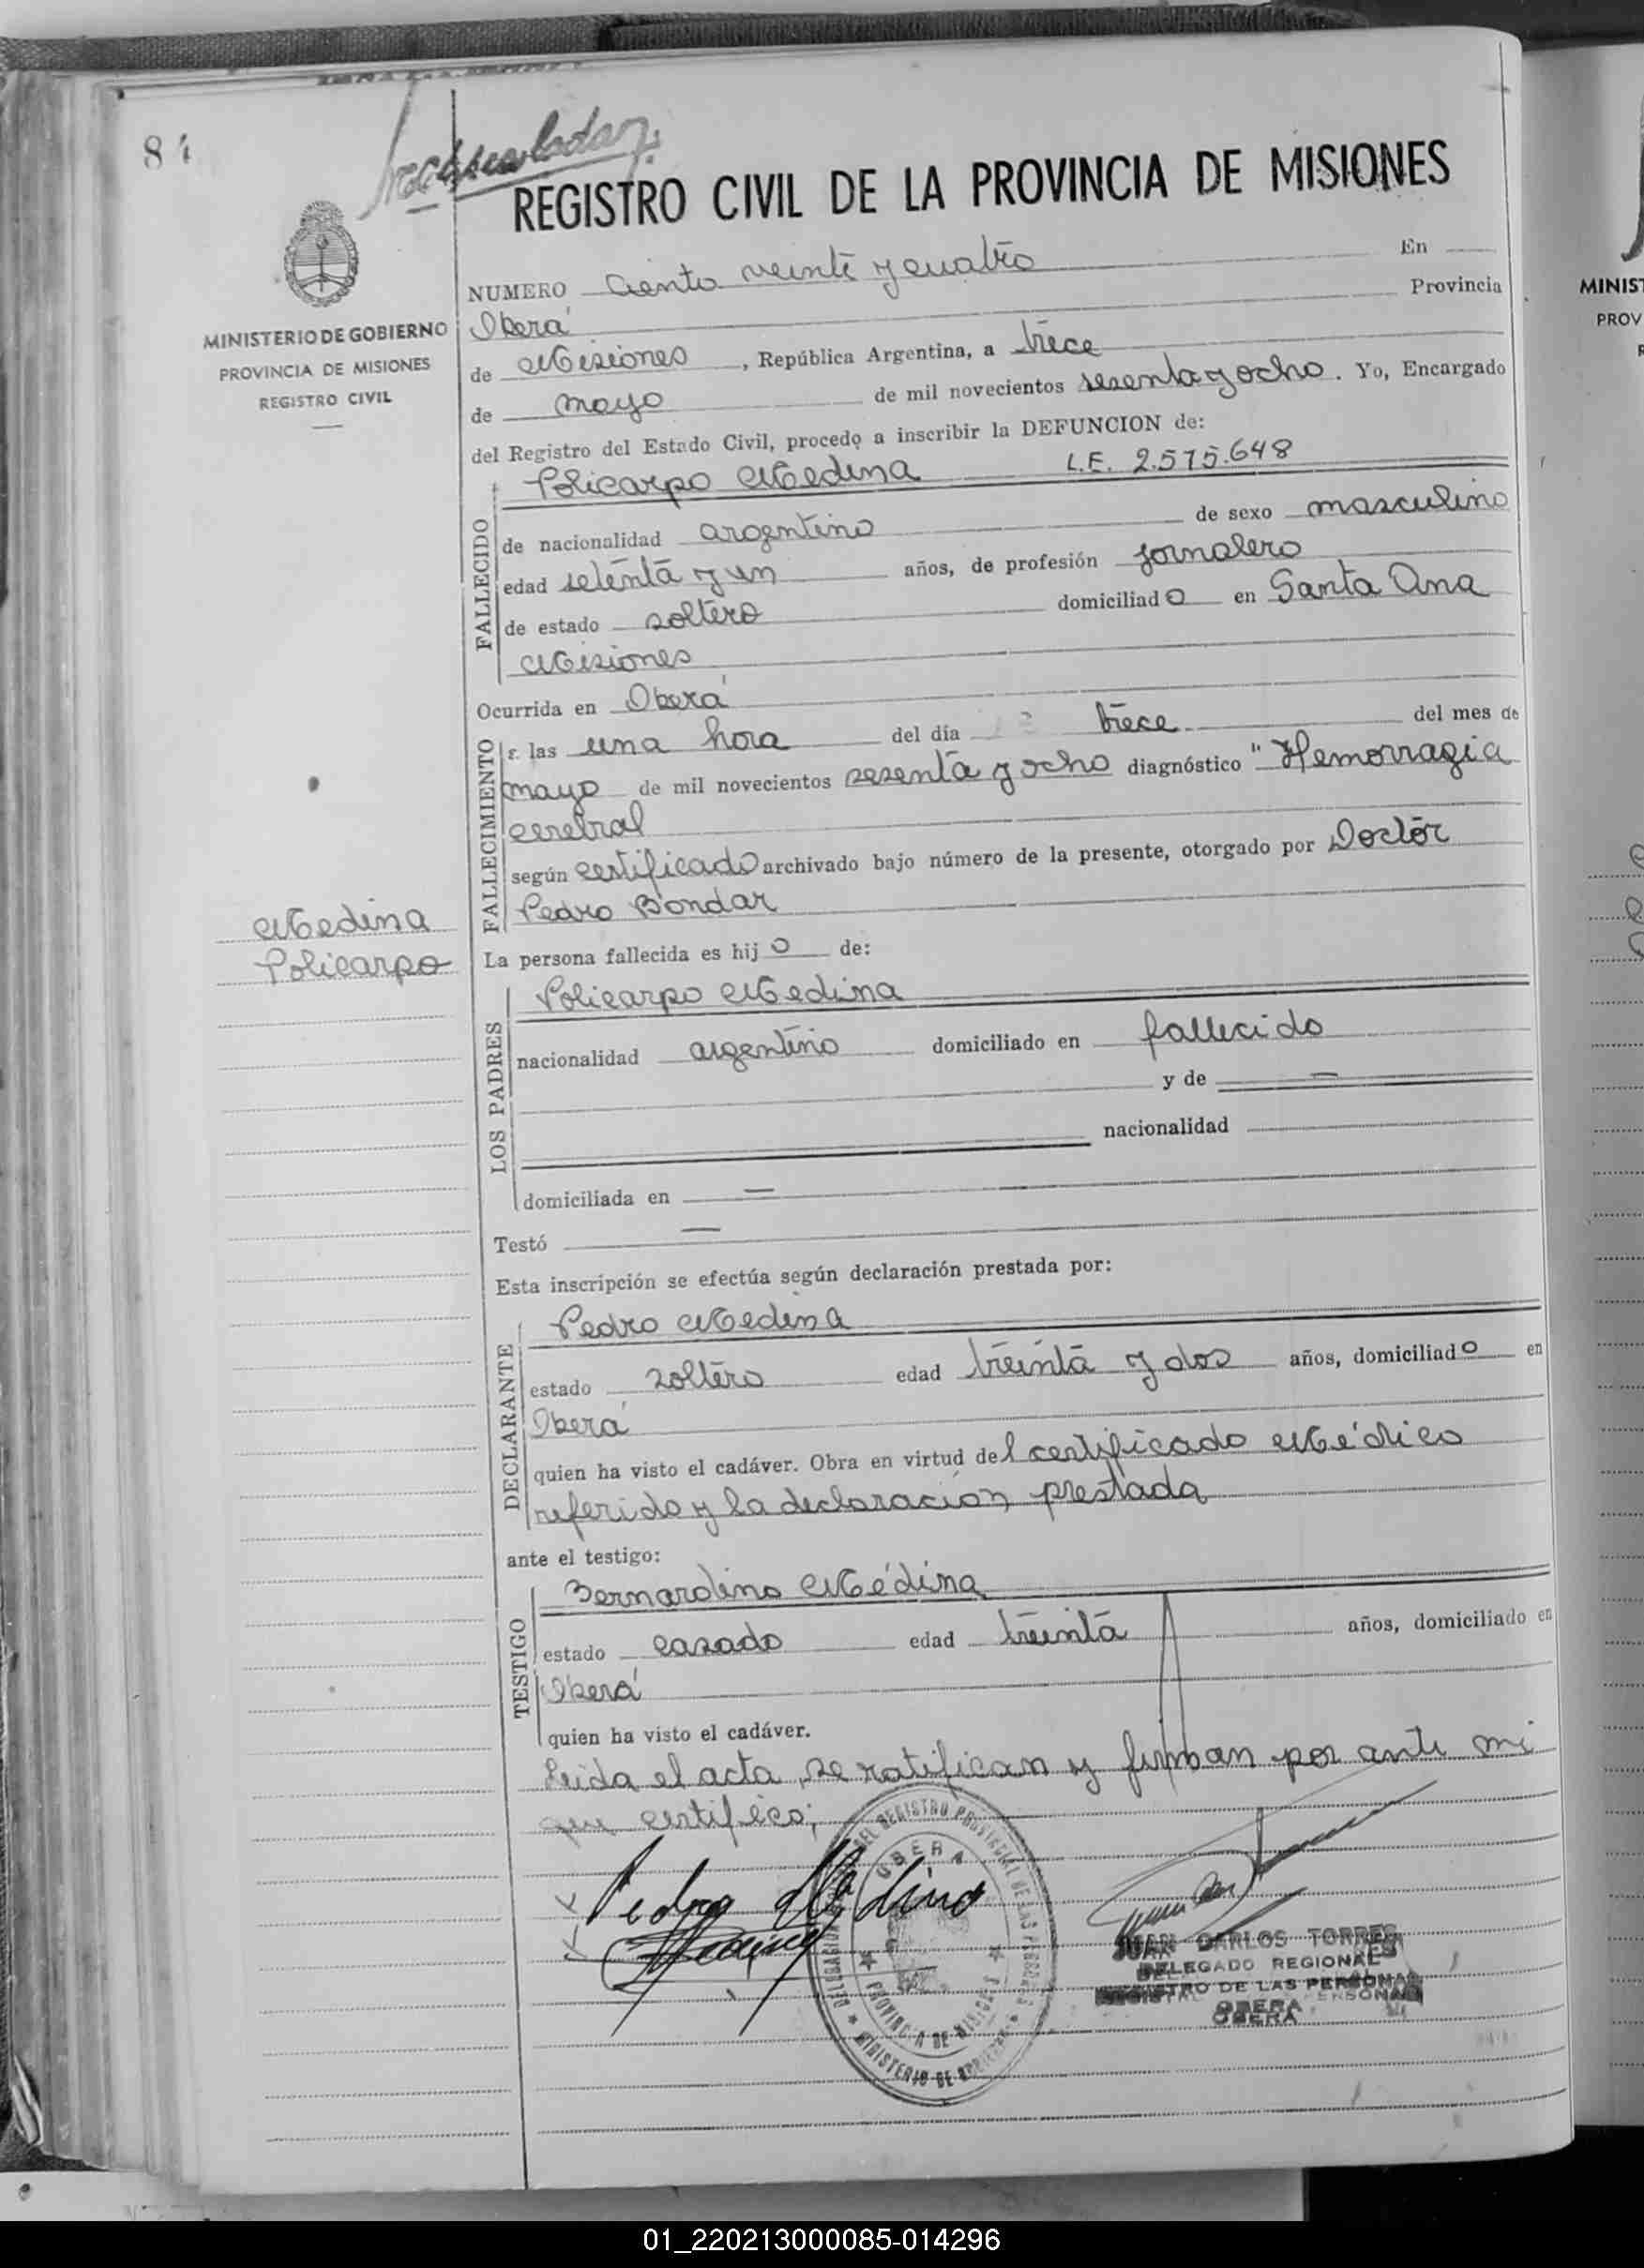 REGISTRO CIVIL DE LA PROVINCIA DE MISIONES
MINISTERIO DE GOBIERNO
PROVINCIA DE MISIONES
REGISTRO CIVIL
NUMERO Ciento veinte y cuatro En
Oberá Provincia
de Misiones, República Argentina, a trece
de mayo de mil novecientos sesenta y ocho. Yo, Encargado
del Registro del Estado Civil, procedo a inscribir la DEFUNCION de:
FALLECIDO
Policarpo Medina L.E. 2.575.648
de nacionalidad argentino de sexo masculino
edad setenta y un años, de profesión jornalero
de estado soltero domiciliado en Santa Ana
Misiones
Ocurrida en Oberá
FALLECIMIENTO
a las una hora del día trece del mes de
mayo de mil novecientos sesenta y ocho diagnóstico "Hemorragia
cerebral
según certificado archivado bajo número de la presente, otorgado por Doctor
Pedro Bondar
Medina
Policarpo
La persona fallecida es hijo de:
LOS PADRES
Policarpo Medina
nacionalidad argentino domiciliado en fallecido
y de —
nacionalidad
domiciliada en —
Testó —
Esta inscripción se efectúa según declaración prestada por:
DECLARANTE
Pedro Medina
estado soltero edad treinta y dos años, domiciliado en
Oberá
quien ha visto el cadáver. Obra en virtud del certificado Médico
referido y la declaración prestada
ante el testigo:
TESTIGO
Bernardino Médina
estado casado edad treinta años, domiciliado en
Oberá
quien ha visto el cadáver.
Leida el acta, se ratifican y firman por ante mi
que certifico;
Pedro Medina
OBERA
PROVINCIA DE MISIONES
MINISTERIO DE GOBIERNO
JUAN CARLOS TORRES
DELEGADO REGIONAL
REGISTRO DE LAS PERSONAS
OBERA
MINIST
PROV
R
01_220213000085-014296